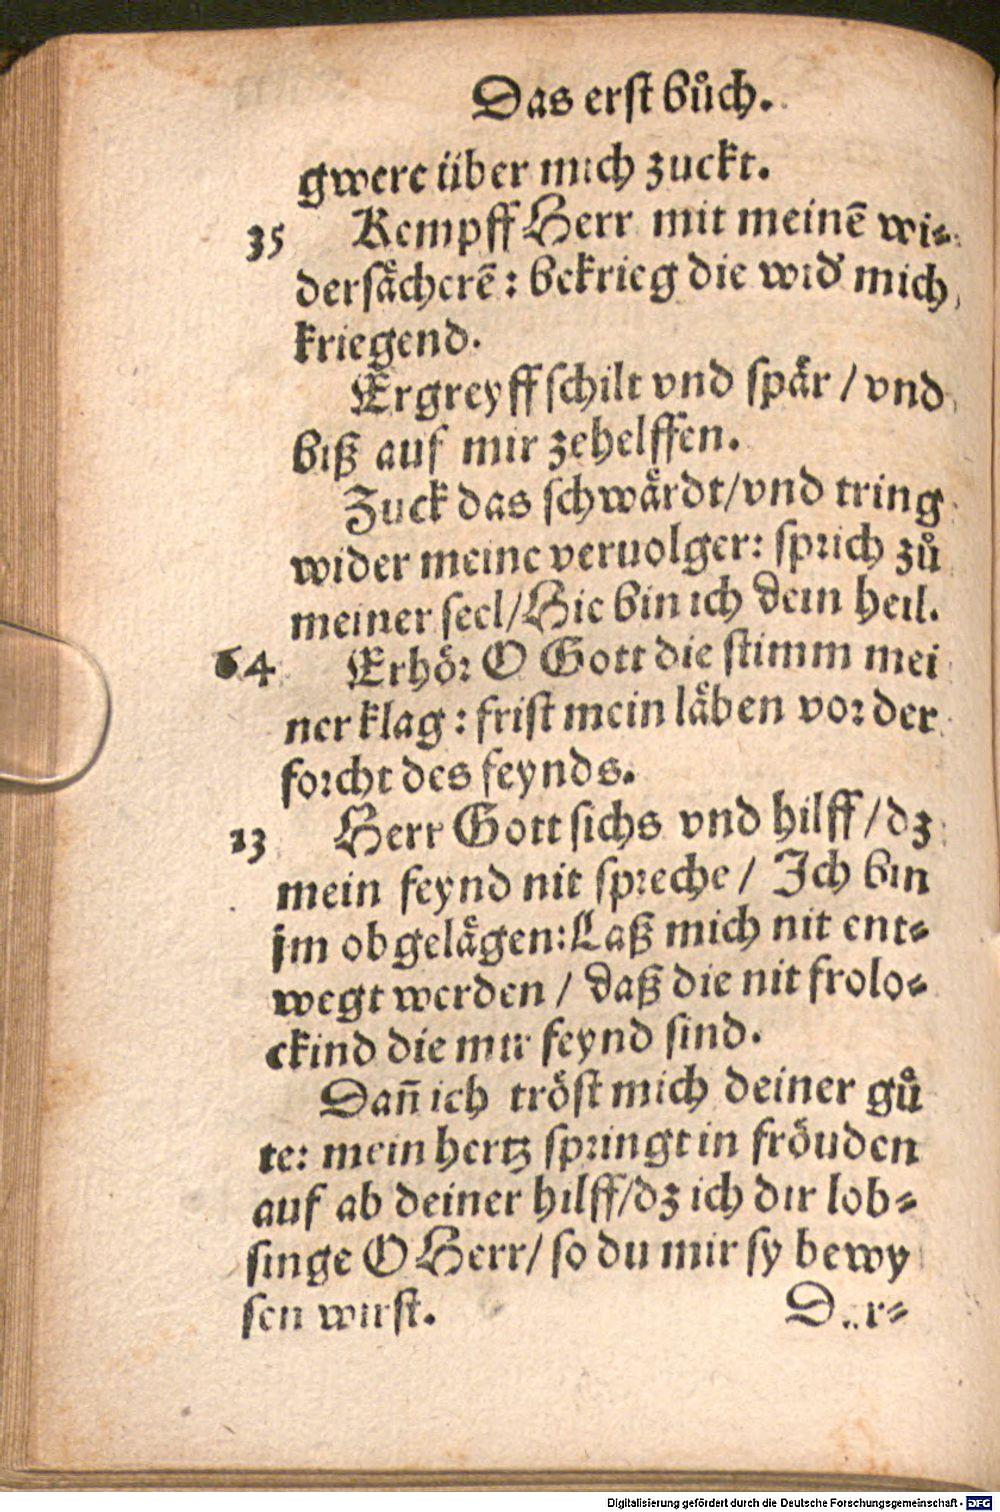 Das erst bůch.
gwere über mich zuckt.
35 Kempff Herr mit meinē wi-
dersächerē: bekrieg die wid mich
kriegend.
Ergreyff schilt vnd spär / vnd
biß auf mir zehelffen.
Zuck das schwärdt/vnd tring
wider meine veruolger: sprich zů
meiner seel/Hie bin ich dein heil.
64 Erhör O Gott die stimm mei
ner klag: frist mein läben vor der
forcht des feynds.
13 Herr Gott sichs vnd hilff/dz
mein feynd nit spreche/ Ich bin
jm obgelägen: Laß mich nit ent-
wegt werden / daß die nit frolo-
ckind die mir feynd sind.
Dañ ich tröst mich deiner gů
te: mein hertz springt in fröuden
auf ab deiner hilff/dz ich dir lob-
singe O Herr/ so du mir sy bewy
sen wirst.
Digitalisierung gefördert durch die Deutsche Forschungsgemeinschaft - DFG